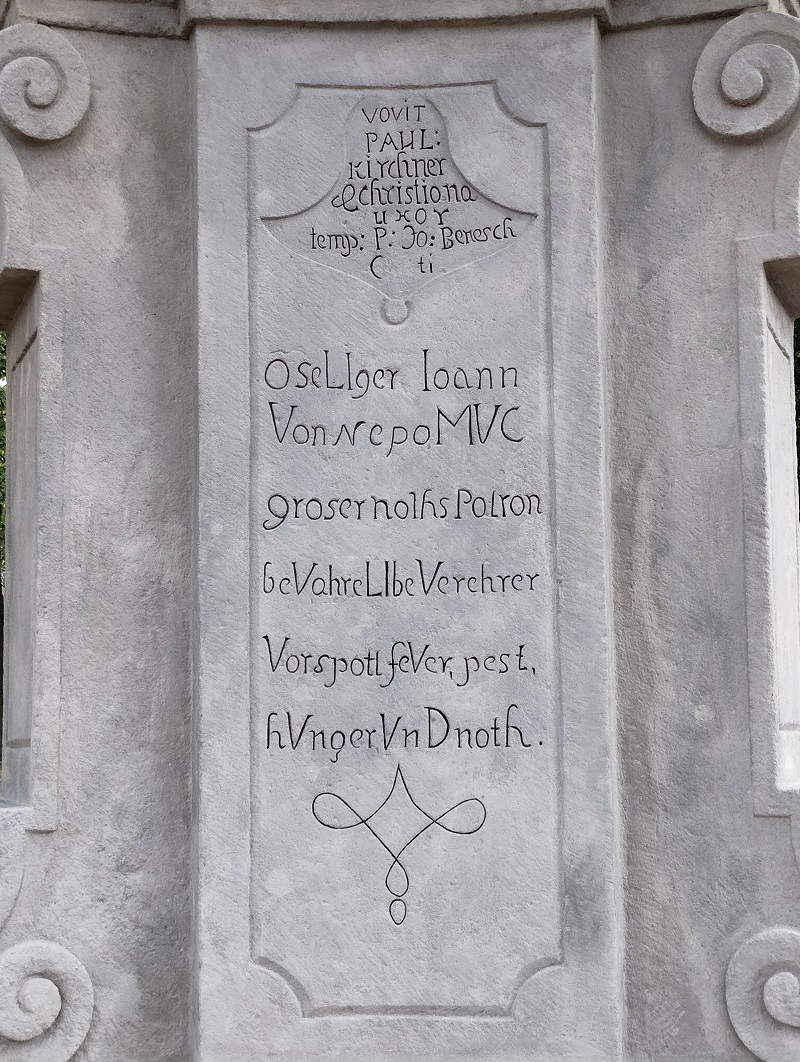 VOVIT
PAUL:
Kirchner
& Christiona
uxor
temp: P: Jo: Beresch
C ti
ÖseLIger Ioann
Von NepoMVC
groser nolhs Polron
beVahre LIbe Verehrer
Vor spotl feVer, pest,
hVnger VnD noth.